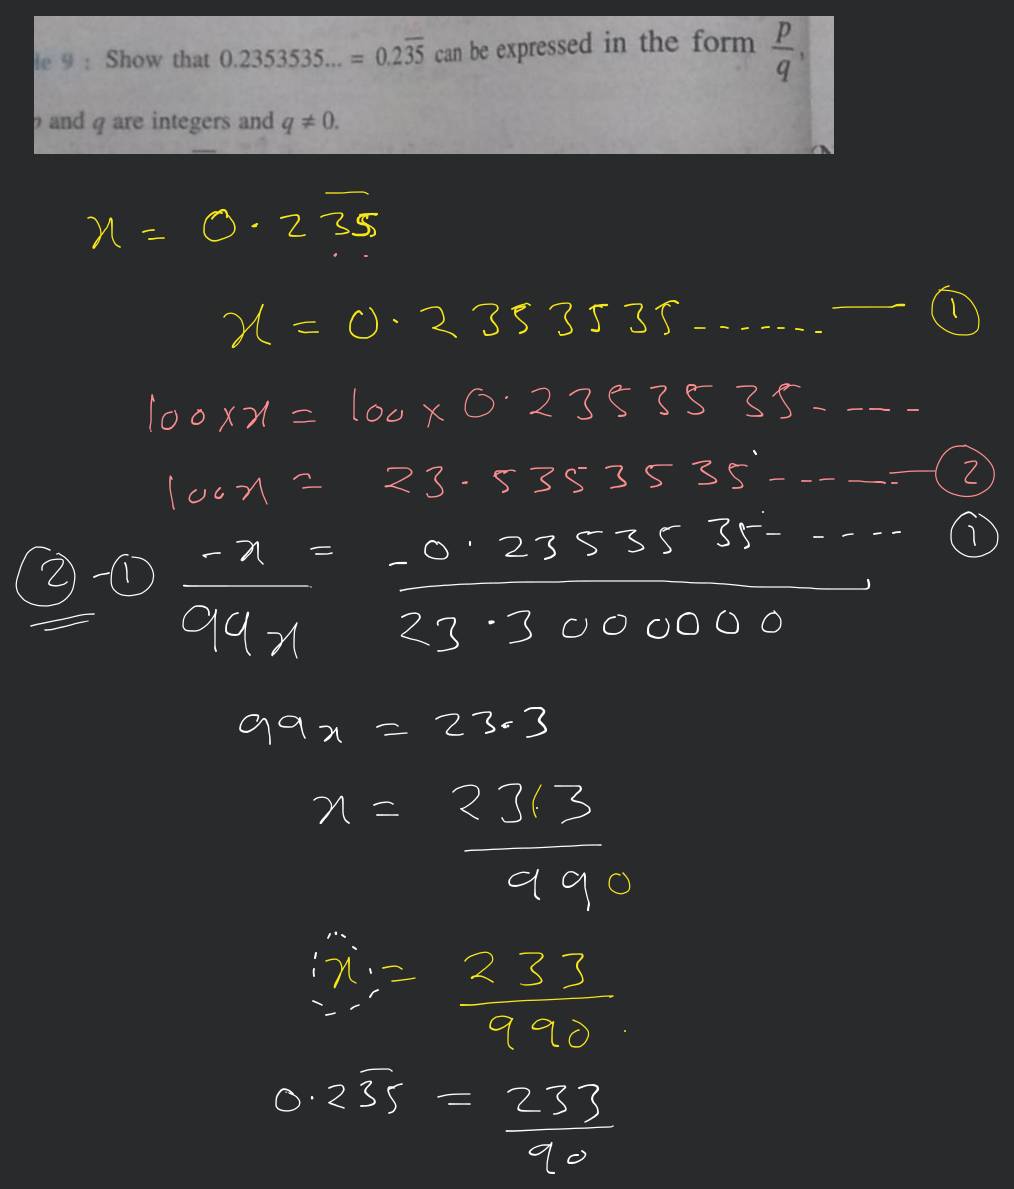 le 9 : Show that 0.2353535... = 0.23̅5̅ can be expressed in the form p/q,
and q are integers and q ≠ 0.
x = 0.23̅5̅
x = 0.2353535....... — ①
100 x x = 100 x 0.2353535----
100x = 23.5353535------ — ②
② - ① -x = -0.2353535----- ①
99x 23.3000000
99x = 23.3
x = 23(3/990
x = 233/990.
0.23̅5̅ = 233/90